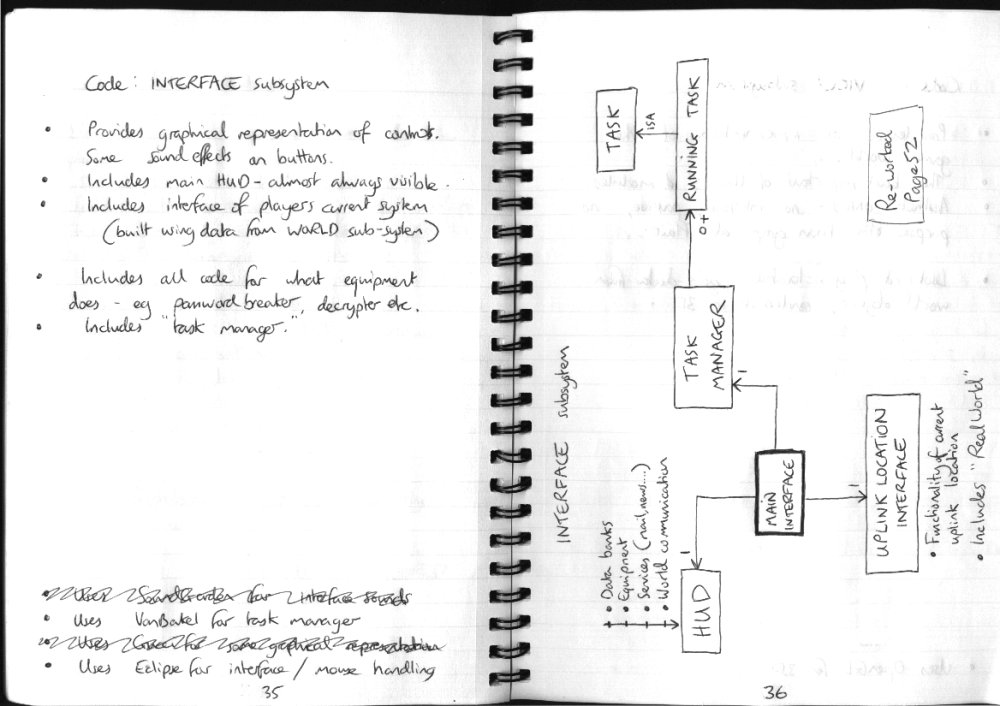 Code: INTERFACE subsystem
• Provides graphical representation of controls.
Some sound effects on buttons.
• Includes main HUD - almost always visible.
• Includes interface of players current system
(built using data from WORLD sub-system)
• Includes all code for what equipment
does - eg password breaker, decrypter etc.
• Includes "task manager."
• Uses Soundcortex for interface sounds
• Uses VanBakel for task manager
• Uses for some graphical representation
• Uses Eclipse for interface / mouse handling
35
INTERFACE subsystem
• Data banks
• Equipment
• Services (mail, news....)
• World communication
HUD
1
MAIN
INTERFACE
1
TASK
MANAGER
1
UPLINK LOCATION
INTERFACE
• Functionality of current
uplink location
• Includes "Real World"
0+
RUNNING TASK
ISA
TASK
Re-worked
Page 52
36